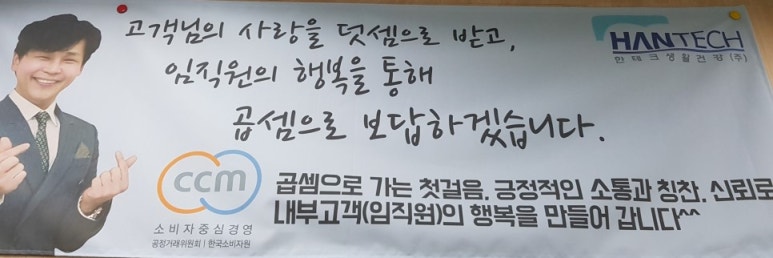 고객님의 사랑을 덧셈으로 받고,
임직원의 행복을 통해
곱셈으로 보답하겠습니다.
HANTECH
한테크생활건강(주)
ccm
소비자중심경영
공정거래위원회 | 한국소비자원
곱셈으로 가는 첫걸음, 긍정적인 소통과 칭찬, 신뢰로
내부고객(임직원)의 행복을 만들어 갑니다^^